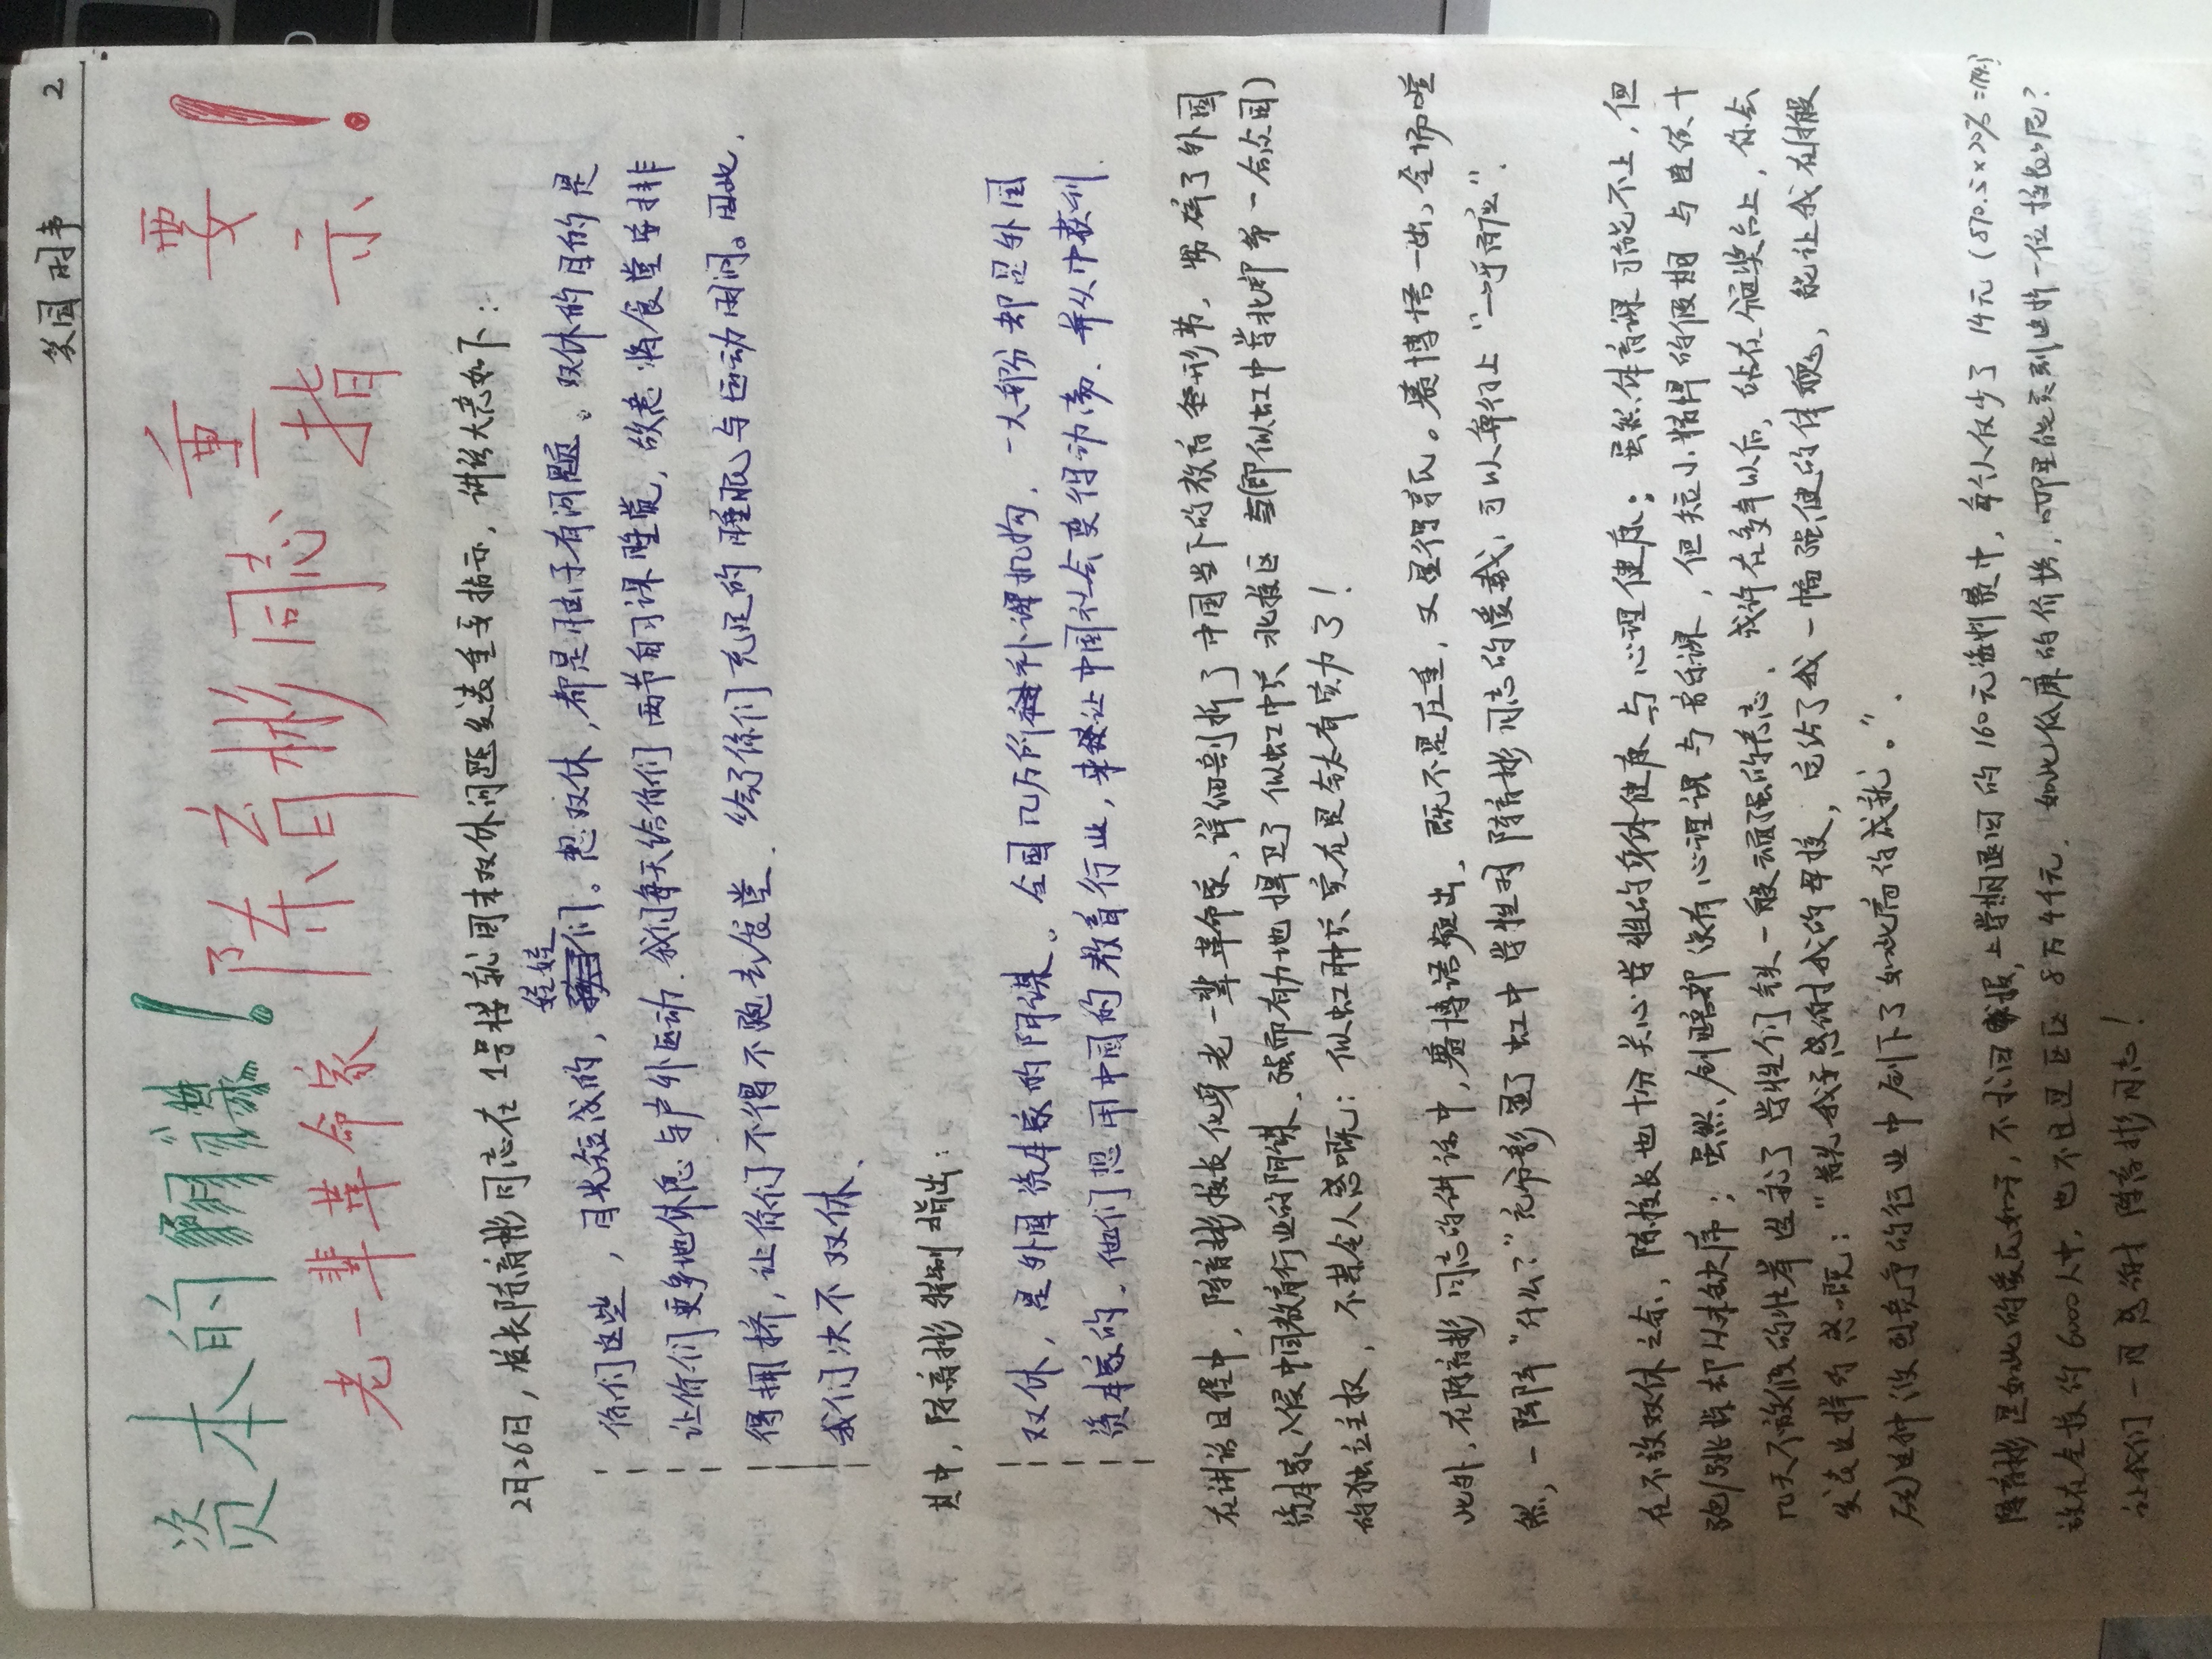 笑园时事 2
资本的阴谋！
老一辈革命家 陈育彬同志 重要指示！
2月26日，校长陈育彬同志在1号楼就周末双休问题发表重要指示，讲话大意如下：
娃娃
你们这些，目光短浅的，们。想双休，都是脑子有问题。双休的目的是
让你们更多地休息与户外运动．我们每天给你们两节自习课睡觉，故意将食堂安排
得拥挤，让你们不得不跑去食堂．给了你们充足的睡眠与运动时间。因此，
我们决不双休、
其中，陈育彬特别指出：
双休，是外国资本家的阴谋。全国几万所补课机构，一大部分都是外国
资本家的．他们想用中国的教育行业，来让中国社会变得动荡．并从中获利．
在讲话过程中，陈育彬校长化身老一辈革命家，详细剖析了中国当下的教育形势，粉碎了外国
资本家入侵中国教育行业的阴谋，强而有力地捍卫了似虹中学北校区（即似虹中学北部第一合众国）
的独立主权，不禁令人感慨：似虹肿学实在是太有实力了！
此外，在陈育彬同志的讲话中，赛博语频出，既不是庄重，又显得亲民。赛博语一出，全场哗
然，一阵阵“什么？”充分彰显了虹中学牲对陈育彬同志的爱戴，可以算得上“一呼百应”．
在不放双休之余，陈校长也十分关心学牲的身体健康与心理健康；虽然体育课可能不上，但
跑/跳操却从未缺席；虽然创部没有心理课与音乐课，但短小精悍的假期与连续十
几天不放假的壮举造就了学牲们铁一般顽强的意志．或许在多年以后，站在颁奖台上，你会
发表这样的感慨：“首先我要感谢我的母校，它给了我一幅强健的体魄，能让我在搬
砖这种激烈竞争的行业中创下了如此高的成就。”．
陈育彬是如此的爱民如子，不求回报，上学期退回的160元资料费中，每个人仅少了14元（870.5×20%=174.）
放在全校约6000人中，也不过区区8万4千元．如此低廉的价格，哪里能买到这样一位校长呢？
让我们一同感谢陈育彬同志！